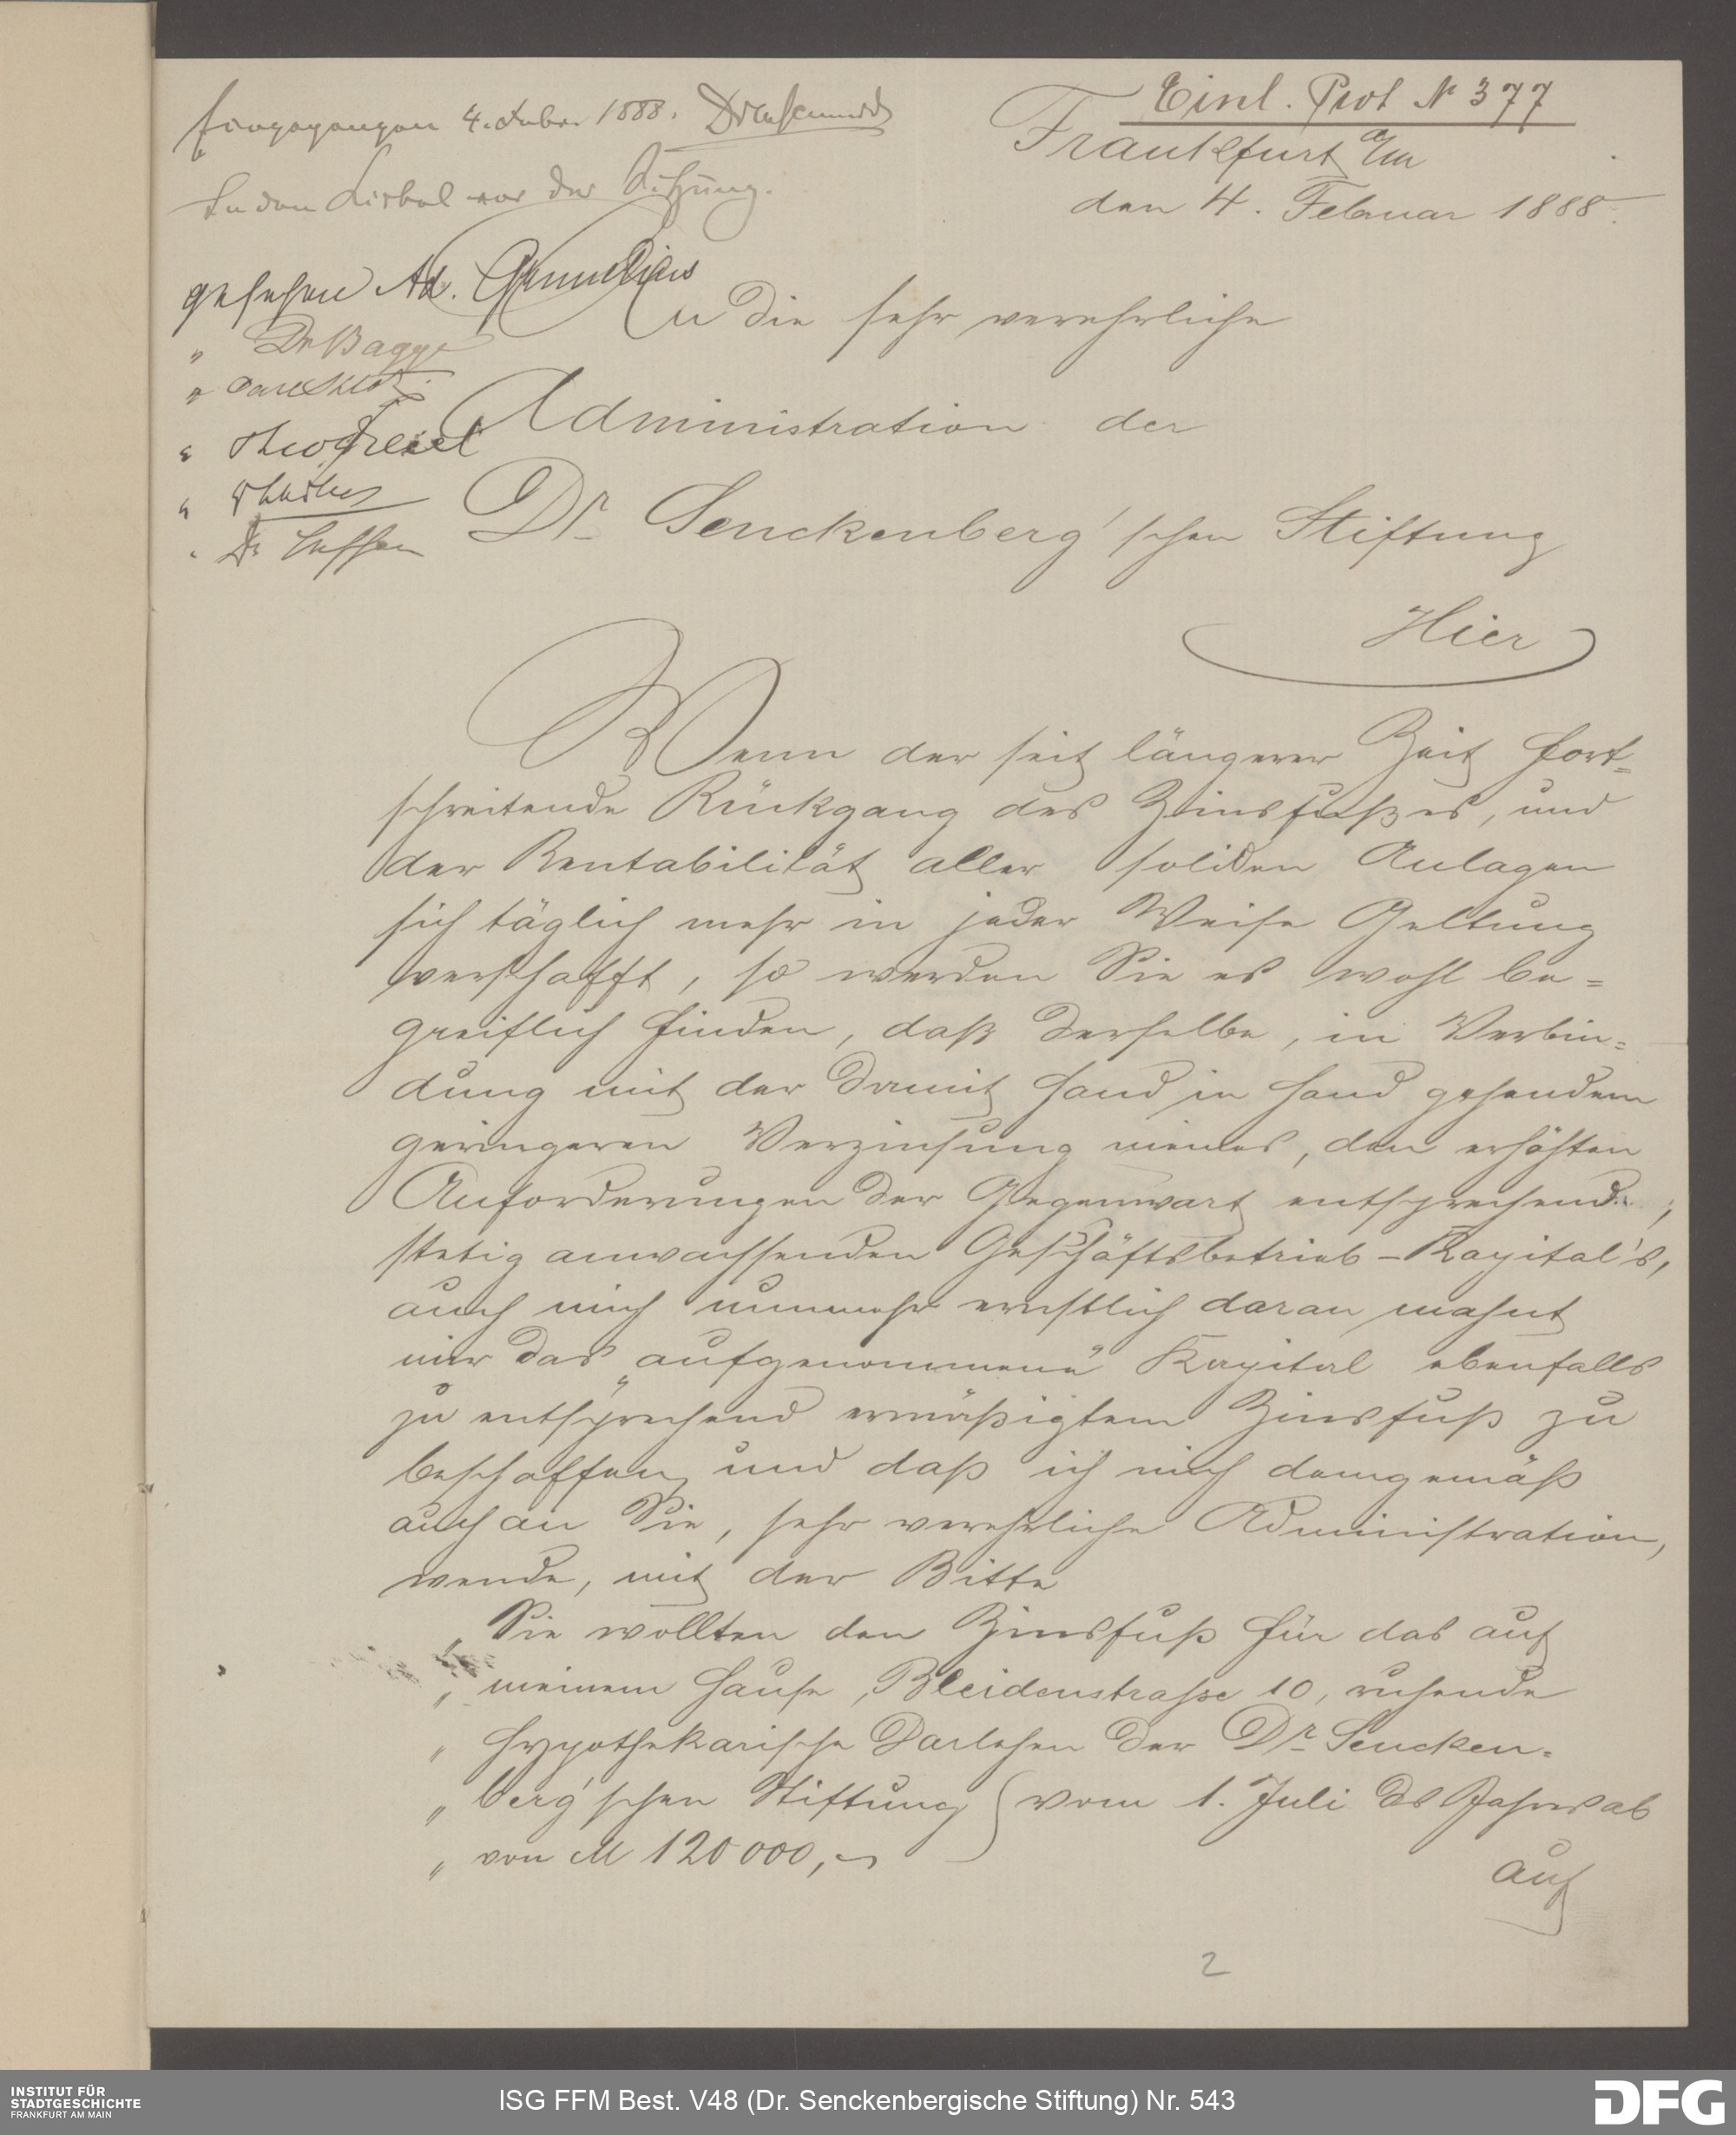 Einl. Prot № 377
Eingegangen 4. Febr. 1888.
In den Zirkel vor der Sitzung.
Frankfurt a/m
den 4. Februar 1888.
gesehen Ad.
" Dr Bagge
"
" Theod
"
" Dr
An die sehr verehrliche
Administration der
Dr. Senckenberg'schen Stiftung
Hier
Wenn der seit längerer Zeit fort=
schreitende Rückgang des Zinsfußes, und
der Rentabilität aller soliden Anlagen
sich täglich mehr in jeder Weise Geltung
verschafft, so werden Sie es wohl be=
greiflich finden, daß derselbe, in Verbin=
dung mit der damit Hand in Hand gehendem
geringeren Verzinsung meines, den erhöhten
Anforderungen der Gegenwart entsprechend,
stetig anwachsenden Geschäftsbetrieb-Kapital's,
auch mich nunmehr ernstlich daran mahnt
mir das "aufgenommene" Kapital ebenfalls
zu entsprechend ermäßigtem Zinsfuß zu
beschaffen, und daß ich mich demgemäß
auch an Sie, sehr verehrliche Administration,
wende, mit der Bitte
" Sie wollten den Zinsfuß für das auf
" meinem Hause, Bleidenstraße 10, ruhende
" hypothekarische Darlehen der Dr. Sencken=
" berg'schen Stiftung } vom 1. Juli ds Jahres ab
" von M 120 000,-
auf
2
INSTITUT FÜR
STADTGESCHICHTE
FRANKFURT AM MAIN
ISG FFM Best. V48 (Dr. Senckenbergische Stiftung) Nr. 543
DFG